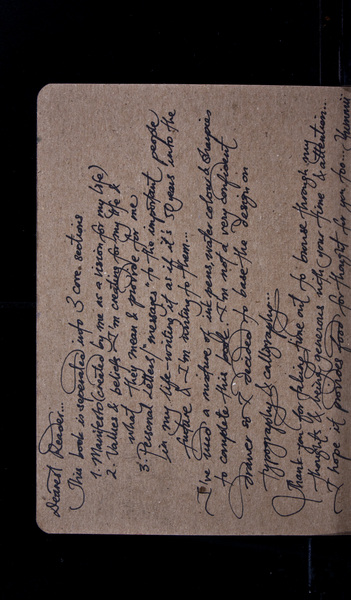 Dearest Reader...
This book is seperated into 3 core sections
1. Manifesto (created by me as a vision for my life)
2. Values & beliefs I'm creating for my life &
what they mean & provide for me
3. Personal letters/messages to the important people
in my life - writing it as if it's 50 years into the
future & I'm writing to them...
I've used a mixture of ink pens, water colours & sharpies
to complete this book. I'm not a very confident
drawer so I decided to base the design on
typography & calligraphy.
Thank you for taking time out to browse through my
thoughts & being generous with your time & attention...
I hope it provides food for thought for you too... Yummii